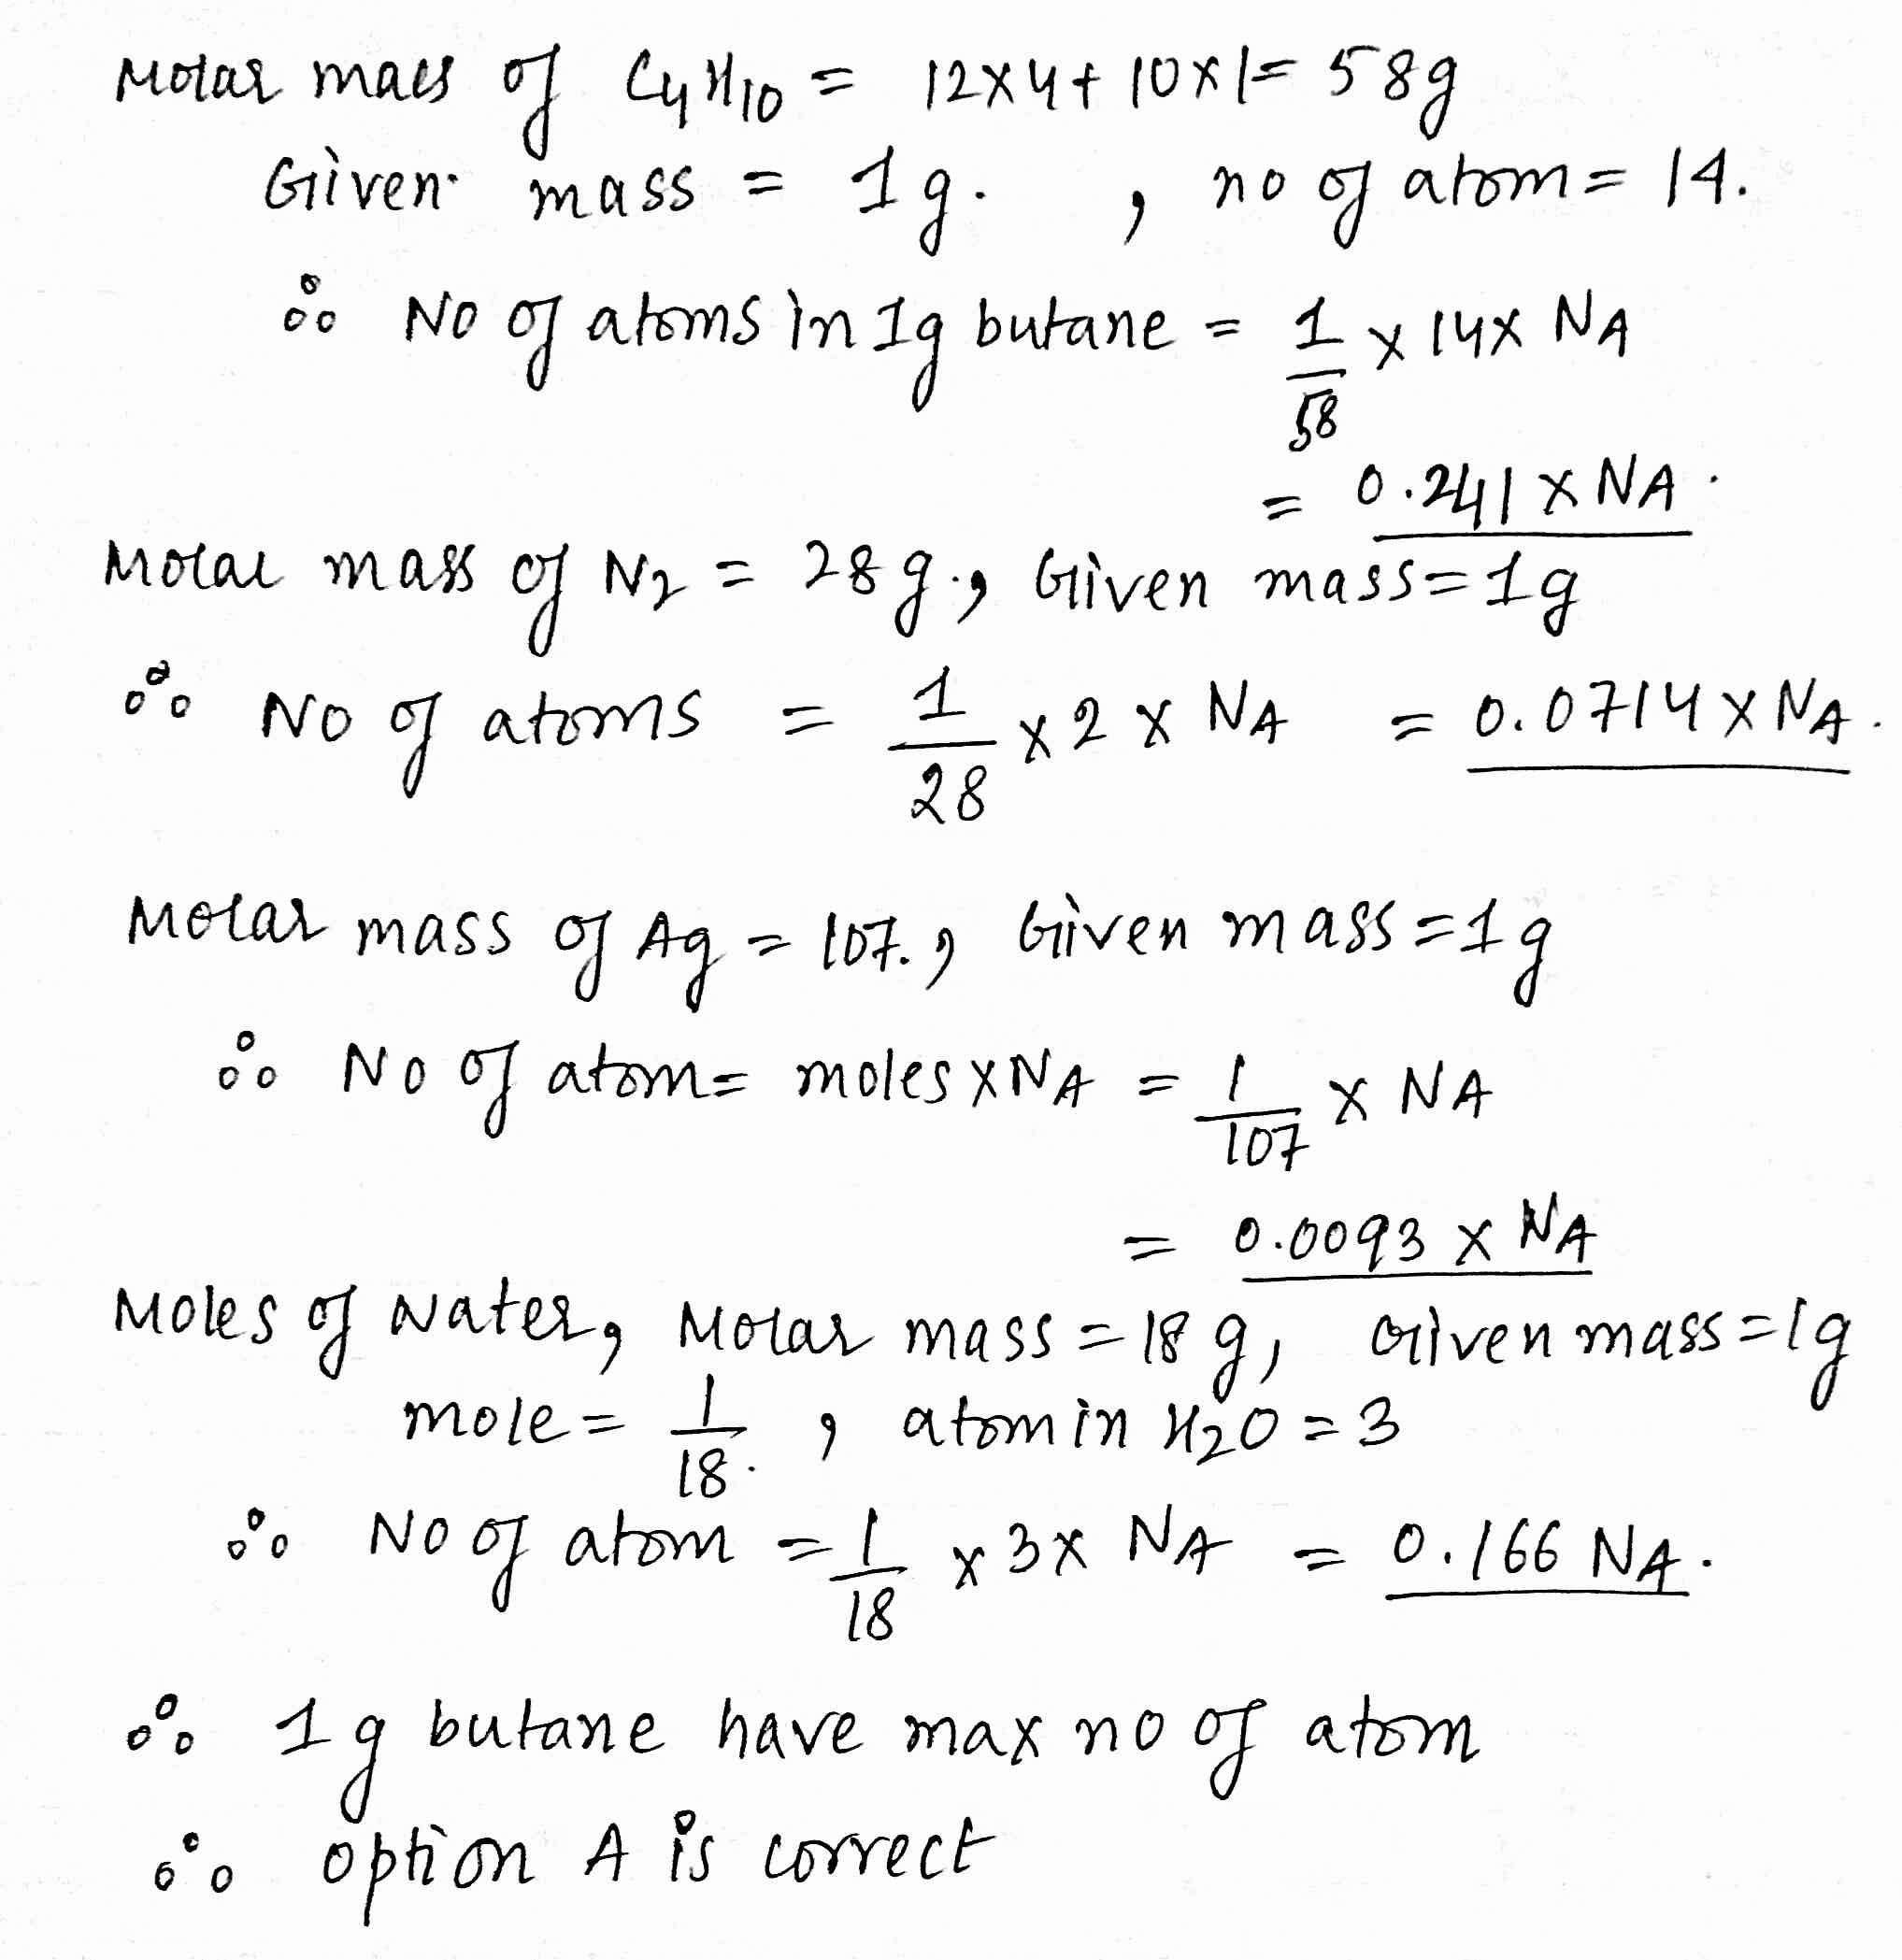 Molar mass of C4H10 = 12x4+ 10x1= 58g
Given mass = 1g. , no of atom= 14.
∴ No of atoms in 1g butane = 1/58 x 14x NA
= 0.241 x NA.
Molar mass of N2 = 28g., Given mass=1g
∴ No of atoms = 1/28 x 2 x NA = 0.0714 x NA.
Molar mass of Ag = 107., Given mass=1g
∴ No of atom= moles x NA = 1/107 x NA
= 0.0093 x NA
Moles of Water, Molar mass = 18 g, Given mass=1g
mole = 1/18. , atom in H2O = 3
∴ No of atom = 1/18 x 3x NA = 0.166 NA.
∴ 1g butane have max no of atom
∴ option A is correct